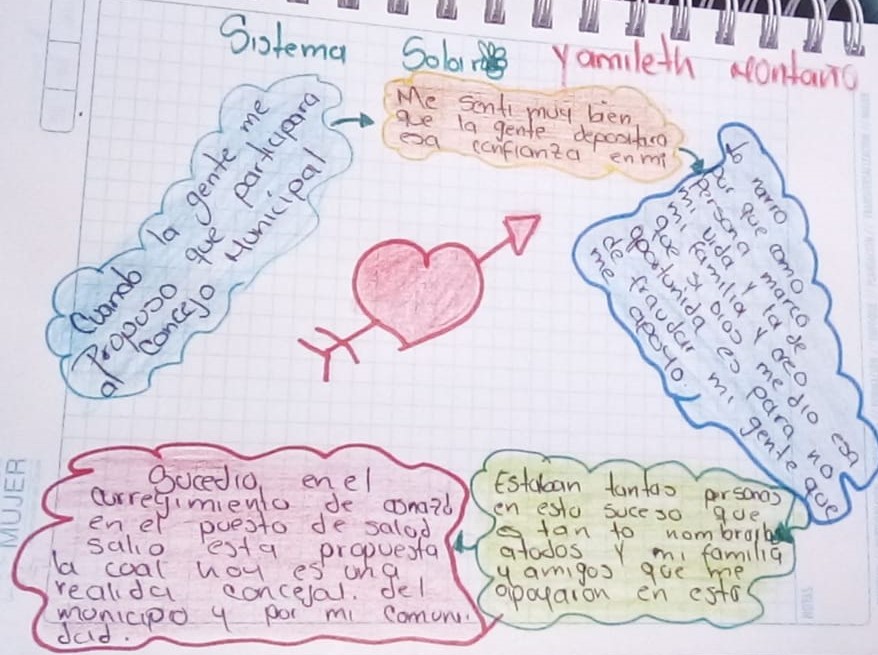 Sistema Solar Yamileth Montaño
Cuando la gente me
Proposo que participara
al Concejo Municipal
Me senti muy bien
que la gente depositaro
esa confianza en mi
lo narro
por que como
persona marco
mi vida y la de
mi familia y creo
que si Dios me dio esa
oportunida es para no
de fraudar mi gente que
me apoyo.
Estaban tantas personas
en esto suceso que
tan to nombrarlos
atodos y mi familia
y amigos que me
apoyaron en esta
Sucedio en el
Correjimiento de
en el puesto de salod
salio esta propuesta
la coal hoy es una
realida concejal. del
municipo y por mi comuni.
dad.
MUJER
NOTAS